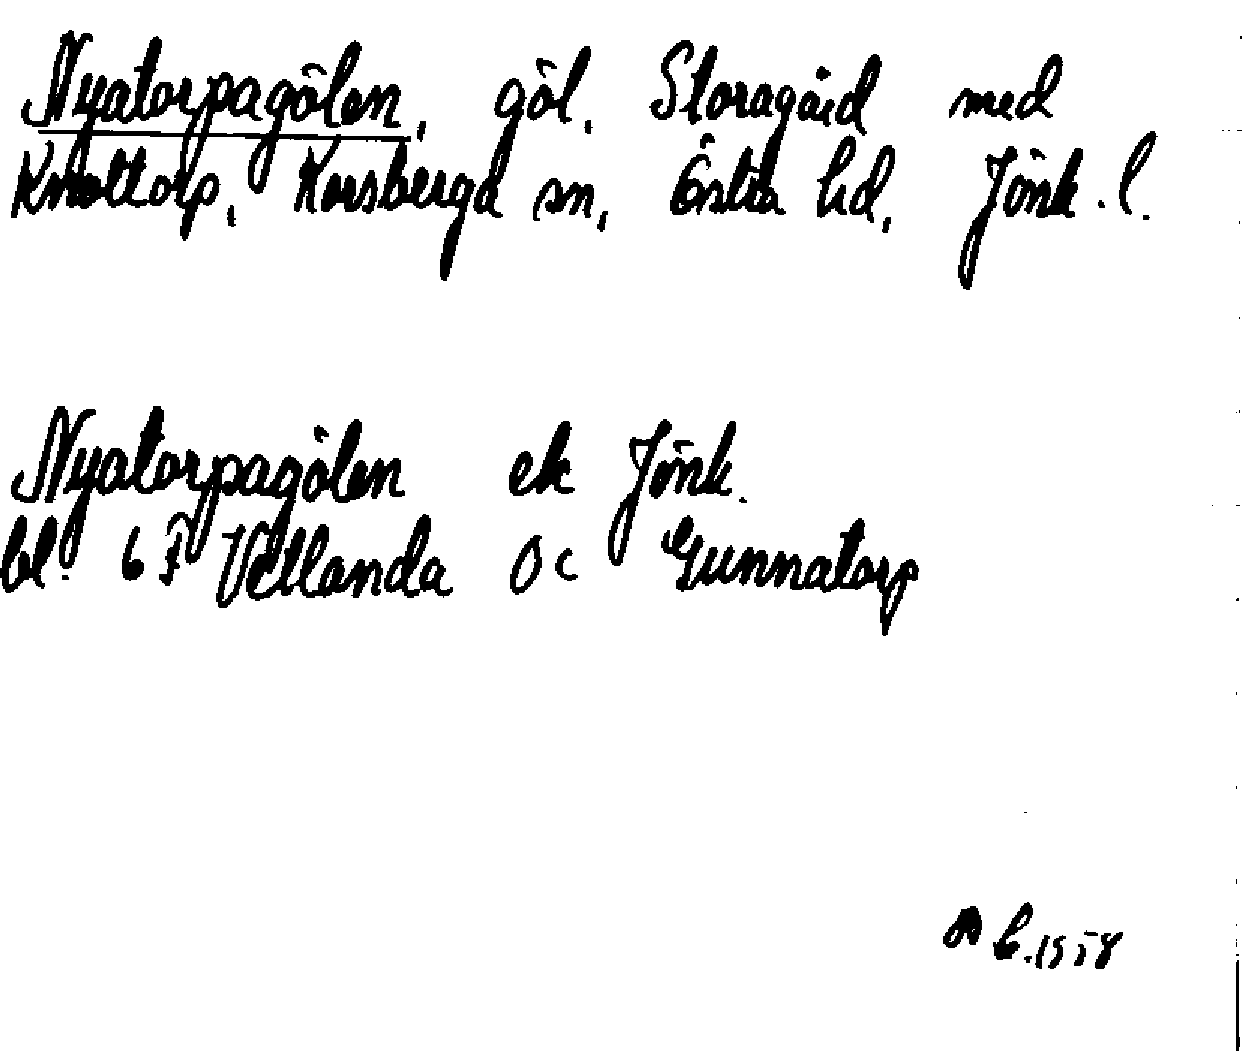 Nyatorpagölen, göl. Storagård med
Knottorp, Korsberga sn, Östra hd, Jönk. l.
Nyatorpagölen ek Jönk.
bl. 6F Vetlanda 0c Gunnatorp
b. 1958